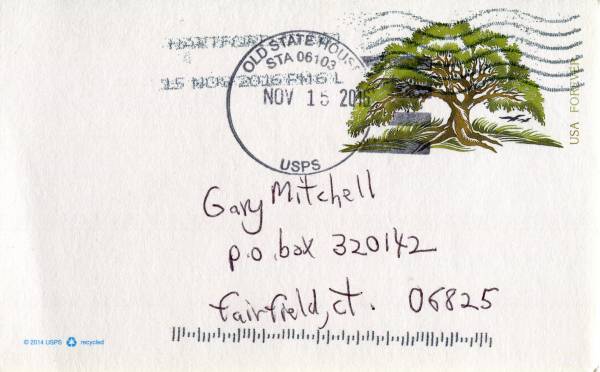 HARTFORD
15 NOV 2016 PM 6 L
OLD STATE HOUSE
STA 06103
NOV 15 2016
USPS
USA FOREVER
Gary Mitchell
p.o. box 320142
fairfield, ct. 06825
© 2014 USPS recycled